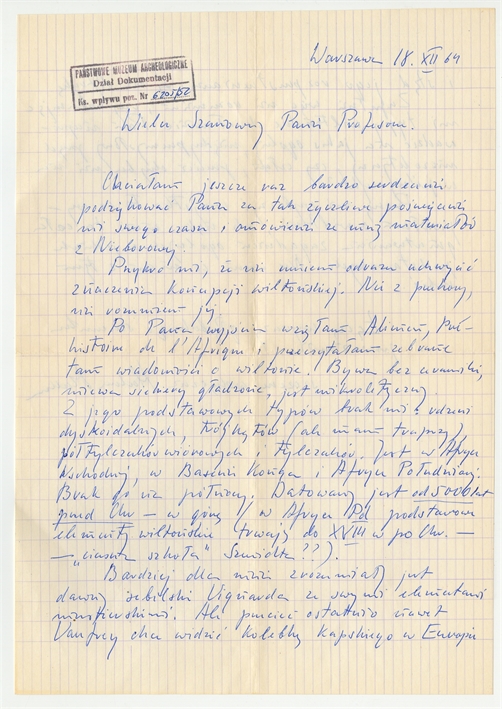 Warszawa 18. XII 64
PAŃSTWOWE MUZEUM ARCHEOLOGICZNE
Dział Dokumentacji
Ks. wpływu poz. Nr
Wielce Szanowny Panie Profesorze.
Chciałam jeszcze raz bardzo serdecznie
podziękować Panu za tak życzliwe poświęcenie
mi swego czasu i omówienie ze mną materiałów
z Nieborowej.
Przykro mi, że nie umiem odrazu uchwycić
znaczenia koncepcji wiltońskiej. Nie z
nie rozumiem jej.
Po Pana wyjściu wzięłam Alimen, Pré-
histoire de l'Afrique i przeczytałam zebrane
tam wiadomości o wiltonie. Bywa bez ceramiki,
miewa siekiery gładzone, jest mikrolityczny.
Z jego podstawowych typów brak mi: rdzeni
dyskoidalnych, trójkątów (ale mam trapezy)
półtylczaków wiórowych i tylczaków. Jest w Afryce
Wschodniej, w Basenie Konga i Afryce Południowej.
Brak go na północy. Datowany jest od 5000 lat
przed Chr. – w górę (w Afryce Pd podstawowe
elementy wiltońskie trwają do XVIII w po Chr. –
– „ciasna szkoła" ??).
Bardziej dla mnie zrozumiały jest
dawny sebilski Vignarda ze swymi elementami
. Ale przecież ostatnio nawet
Vaufrey chce widzieć kolebkę kapskiego w Europie